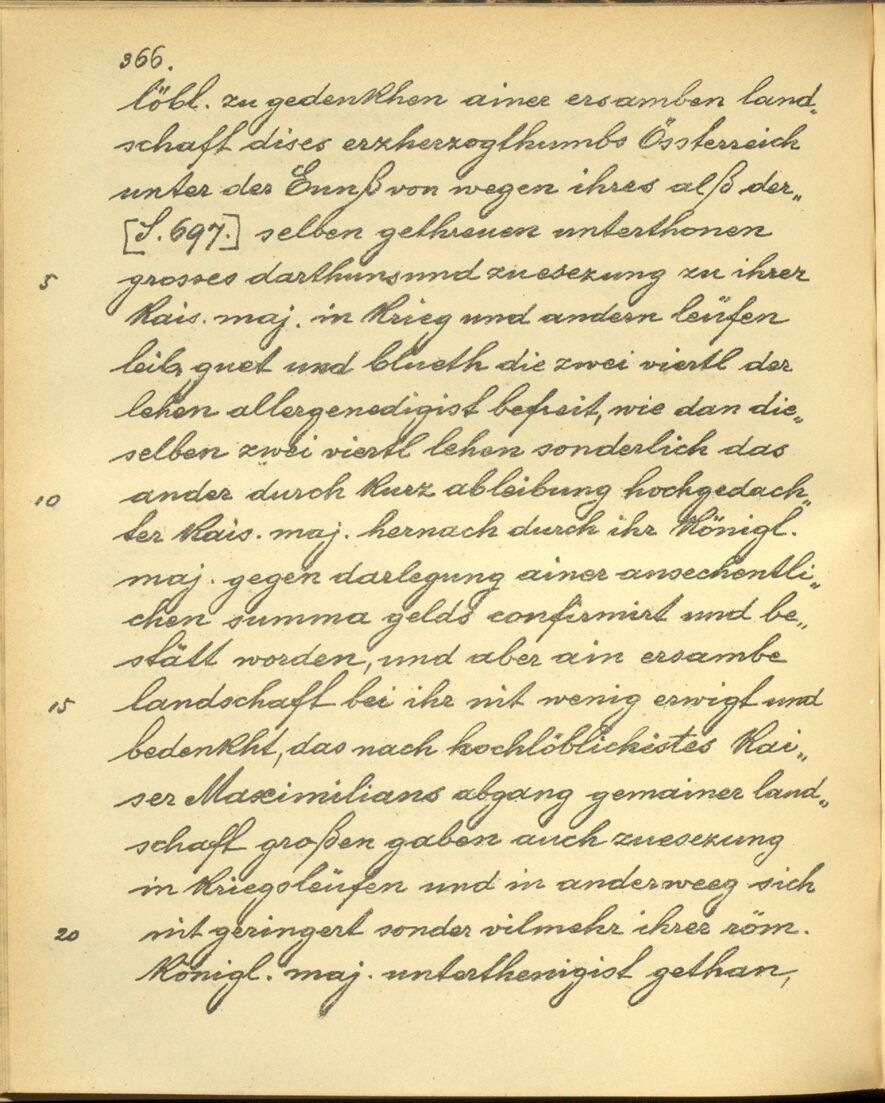 366.
löbl. zu gedenkhen ainer ersamben land„
schaft dises erzherzogthumbs Össterreich
unter der Ennß von wegen ihres alß der„
[S. 697.] selben gethreuen unterthonen
5 grosses darthuns und zuesezung zu ihrer
kais. maj. in krieg und andern leüfen
leib, guet und blueth die zwei viertl der
lehen allergenedigist befreit, wie dan die„
selben zwei viertl lehen sonderlich das
10 ander durch kurz ableibung hochgedach„
ter kais. maj. hernach durch ihr königl.
maj. gegen darlegung ainer ansechentli„
chen summa gelds confirmirt und be„
stätt worden, und aber ain ersambe
15 landschaft bei ihr nit wenig erwigt und
bedenkht, das nach hochlöblichistes kai„
ser Maximilians abgang gemainer land„
schaft großen gaben auch zuesezung
in kriegsleüfen und in anderweeg sich
20 nit geringert sonder vilmehr ihrer röm.
königl. maj. unterthenigist gethan,